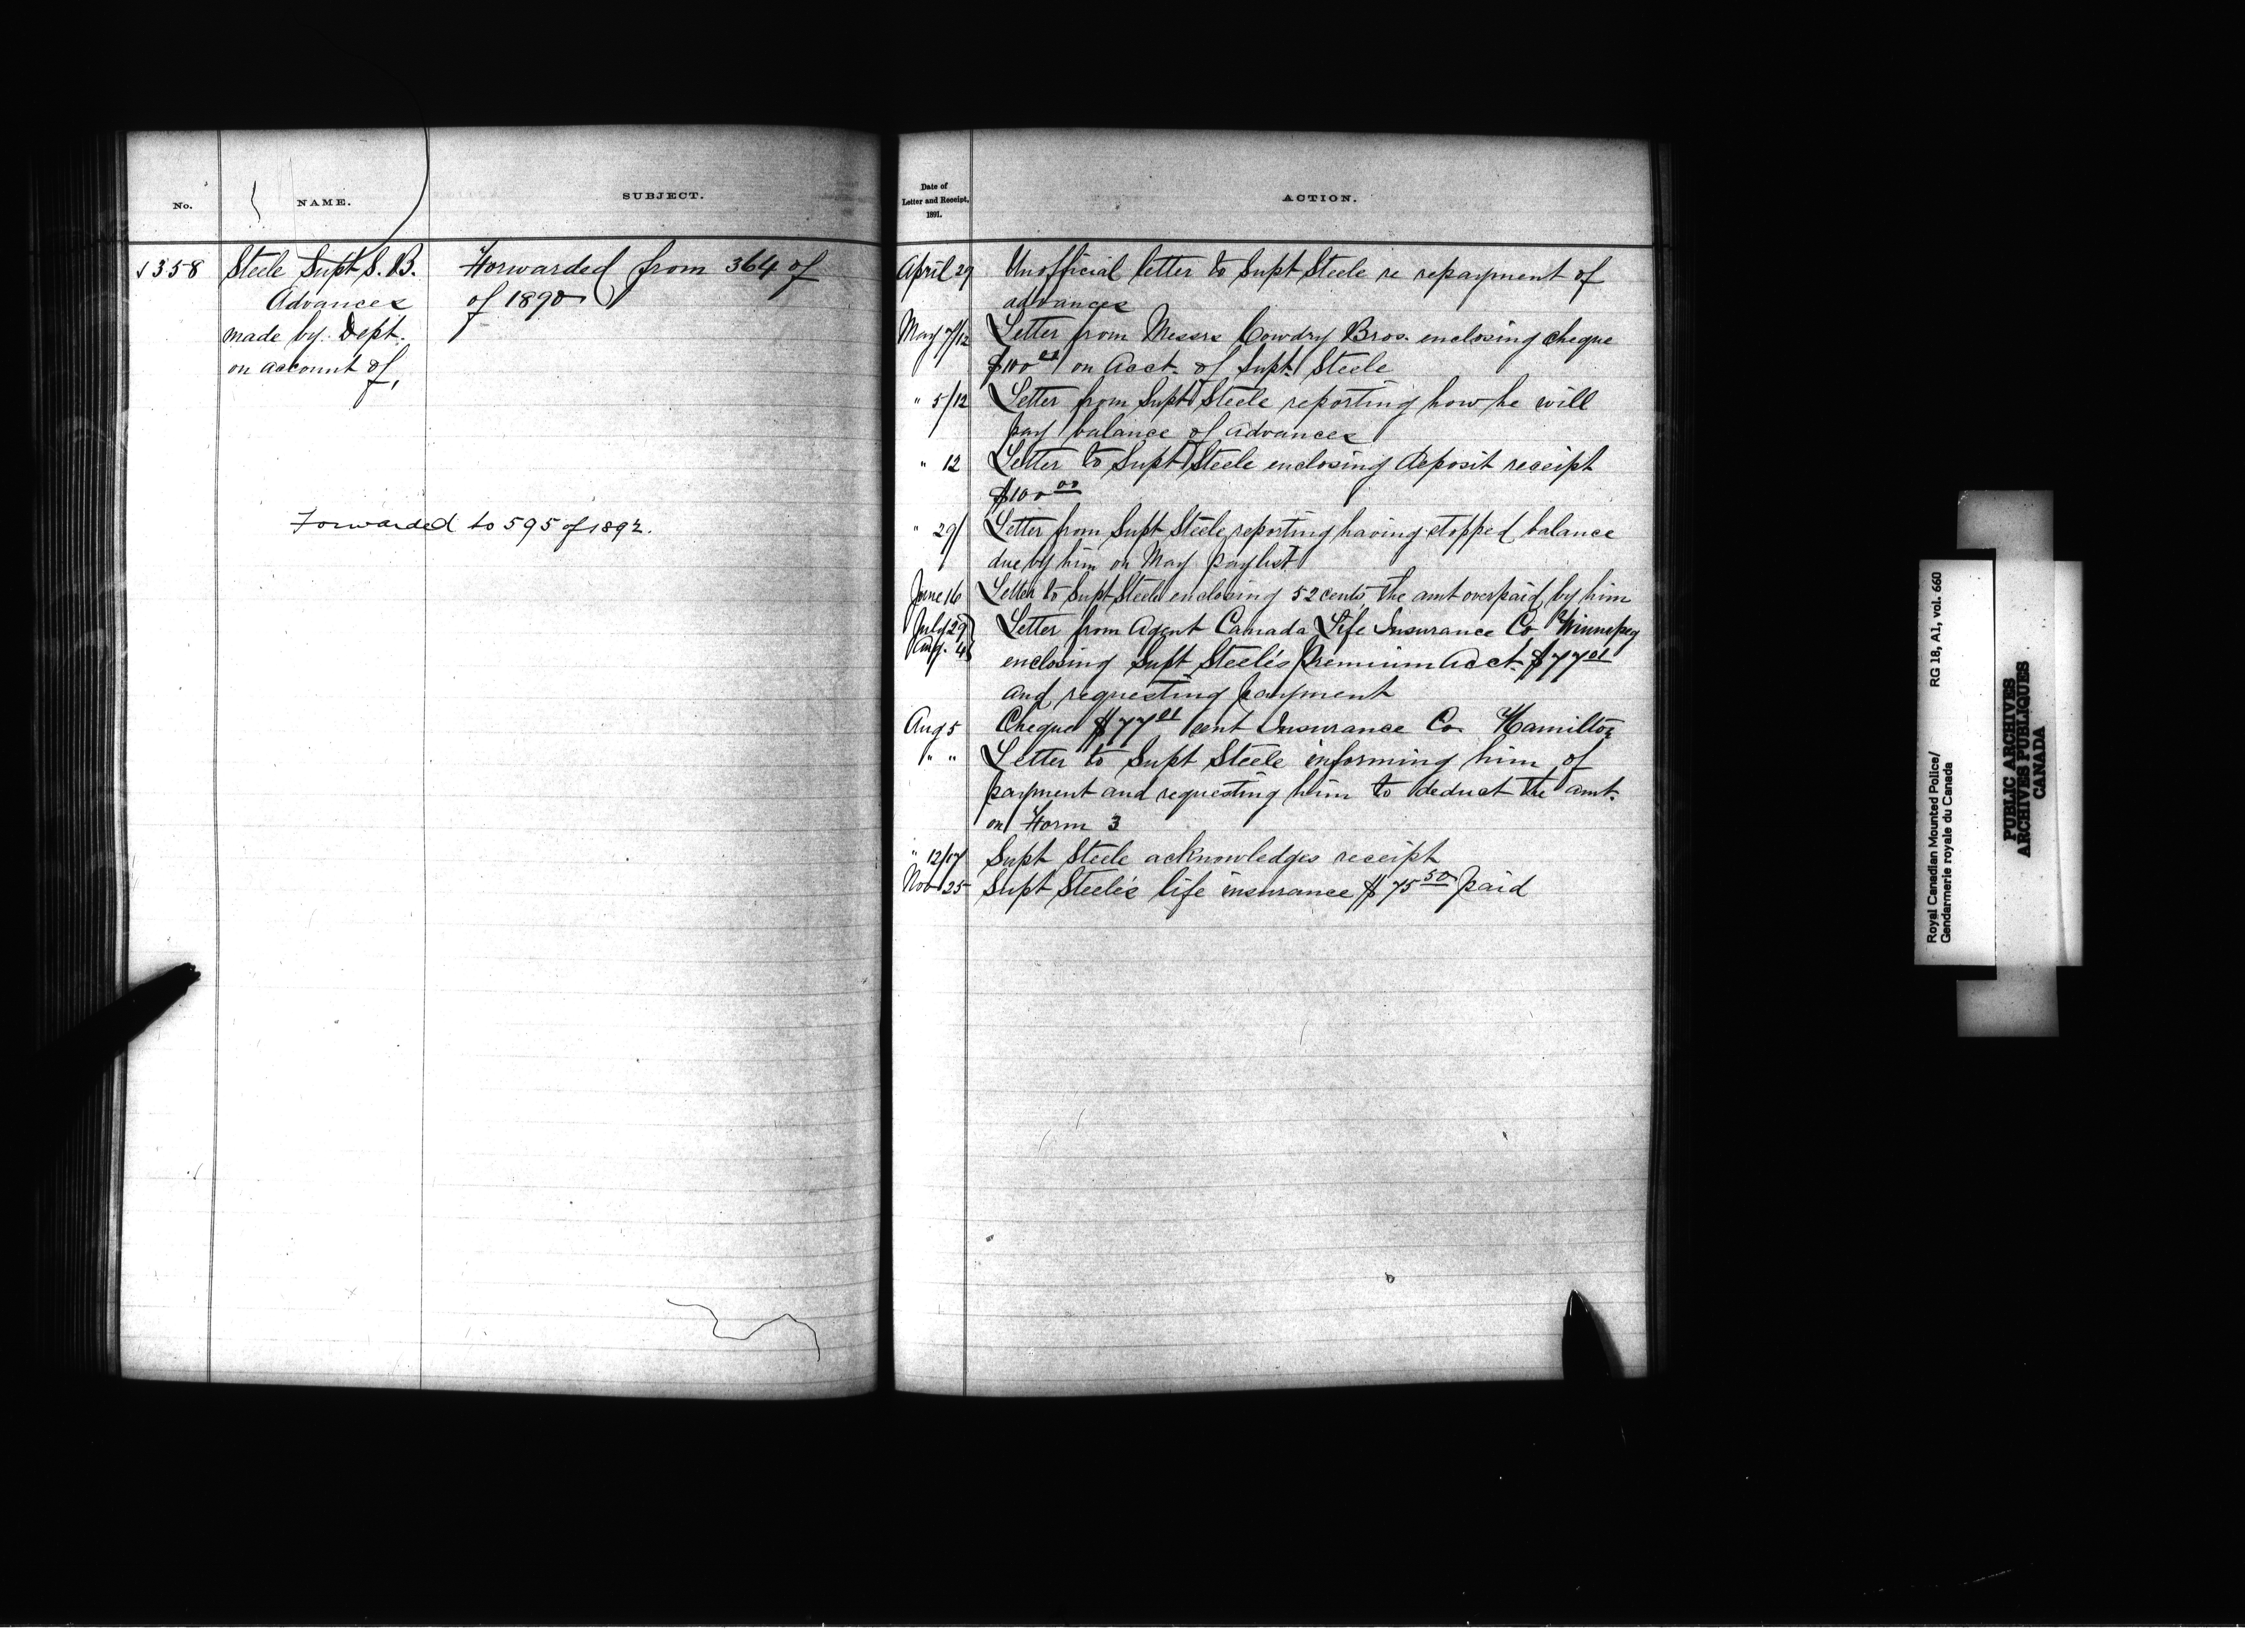 No.
NAME.
SUBJECT.
358
Steele Supt S. B.
Advances
made by Dept.
on account of,
Forwarded from 364 of
of 1890
Forwarded to 595 of 1892.
Date of
Letter and Receipt,
1891.
ACTION.
April 29 Unofficial letter to Supt Steele re repayment of
advances
May 7/12 Letter from Messrs Cowdry Bros. enclosing cheque
$100 on Acct. of Supt. Steele
" 5/12 Letter from Supt Steele reporting how he will
pay balance of advances
" 12 Letter to Supt Steele enclosing deposit receipt
$100 00
" 29/ Letter from Supt Steele reporting having stopped balance
due by him on May paylist
June 16 Letter to Supt Steele enclosing 52 cents the amt overpaid by him
July 29 Letter from Agent Canada Life Insurance Co Winnipeg
Aug. 4 enclosing Supt Steele's Premium Acct. $77 01
and requesting payment
Aug 5 Cheque $77 01 sent Insurance Co. Hamilton
" " Letter to Supt Steele informing him of
payment and requesting him to deduct the amt.
on Form 3
" 12/17 Supt Steele acknowledges receipt
Nov 25 Supt Steele's life insurance $75 50 paid
Royal Canadian Mounted Police/
Gendarmerie royale du Canada
RG 18, A1, vol. 660
PUBLIC ARCHIVES
ARCHIVES PUBLIQUES
CANADA